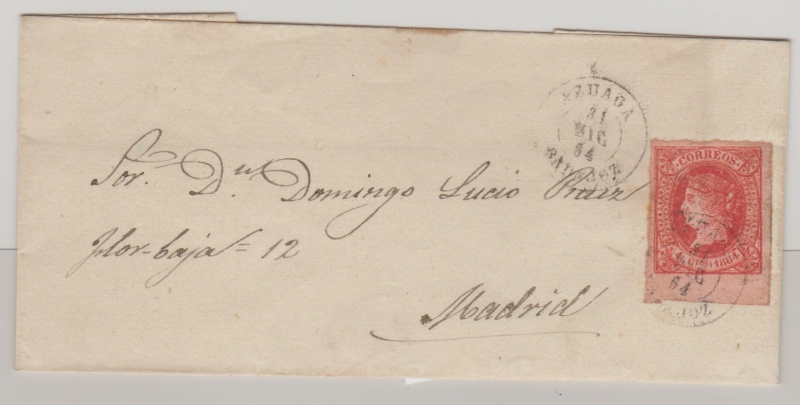 AZUAGA
31
DIC
64
BADAJOZ
CORREOS
4 Ctos 1864
DIC
64
Sor. Dn Domingo Lucio
Flor-baja = 12
Madrid